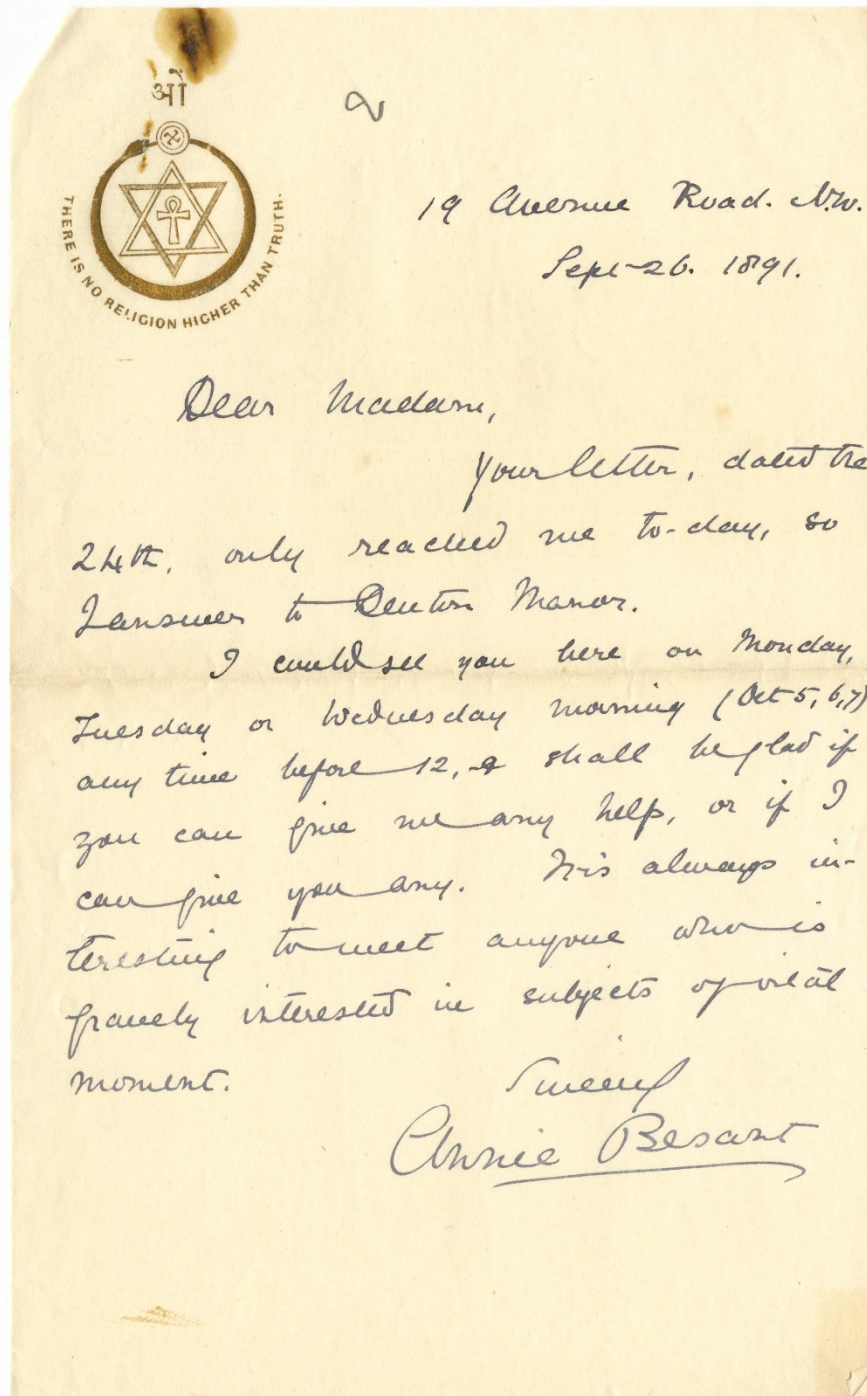 ओं
2
THERE IS NO RELIGION HIGHER THAN TRUTH.
19 Avenue Road. N.W.
Sept-26. 1891.
Dear Madam,
Your letter, dated the
24th, only reached me to-day, so
I answer to Denton Manor.
I could see you here on Monday,
Tuesday or Wednesday morning (Oct 5, 6, 7)
any time before 12, & shall be glad if
you can give me any help, or if I
can give you any. It is always in-
teresting to meet anyone who is
gravely interested in subjects of vital
moment.
Sincerely
Annie Besant